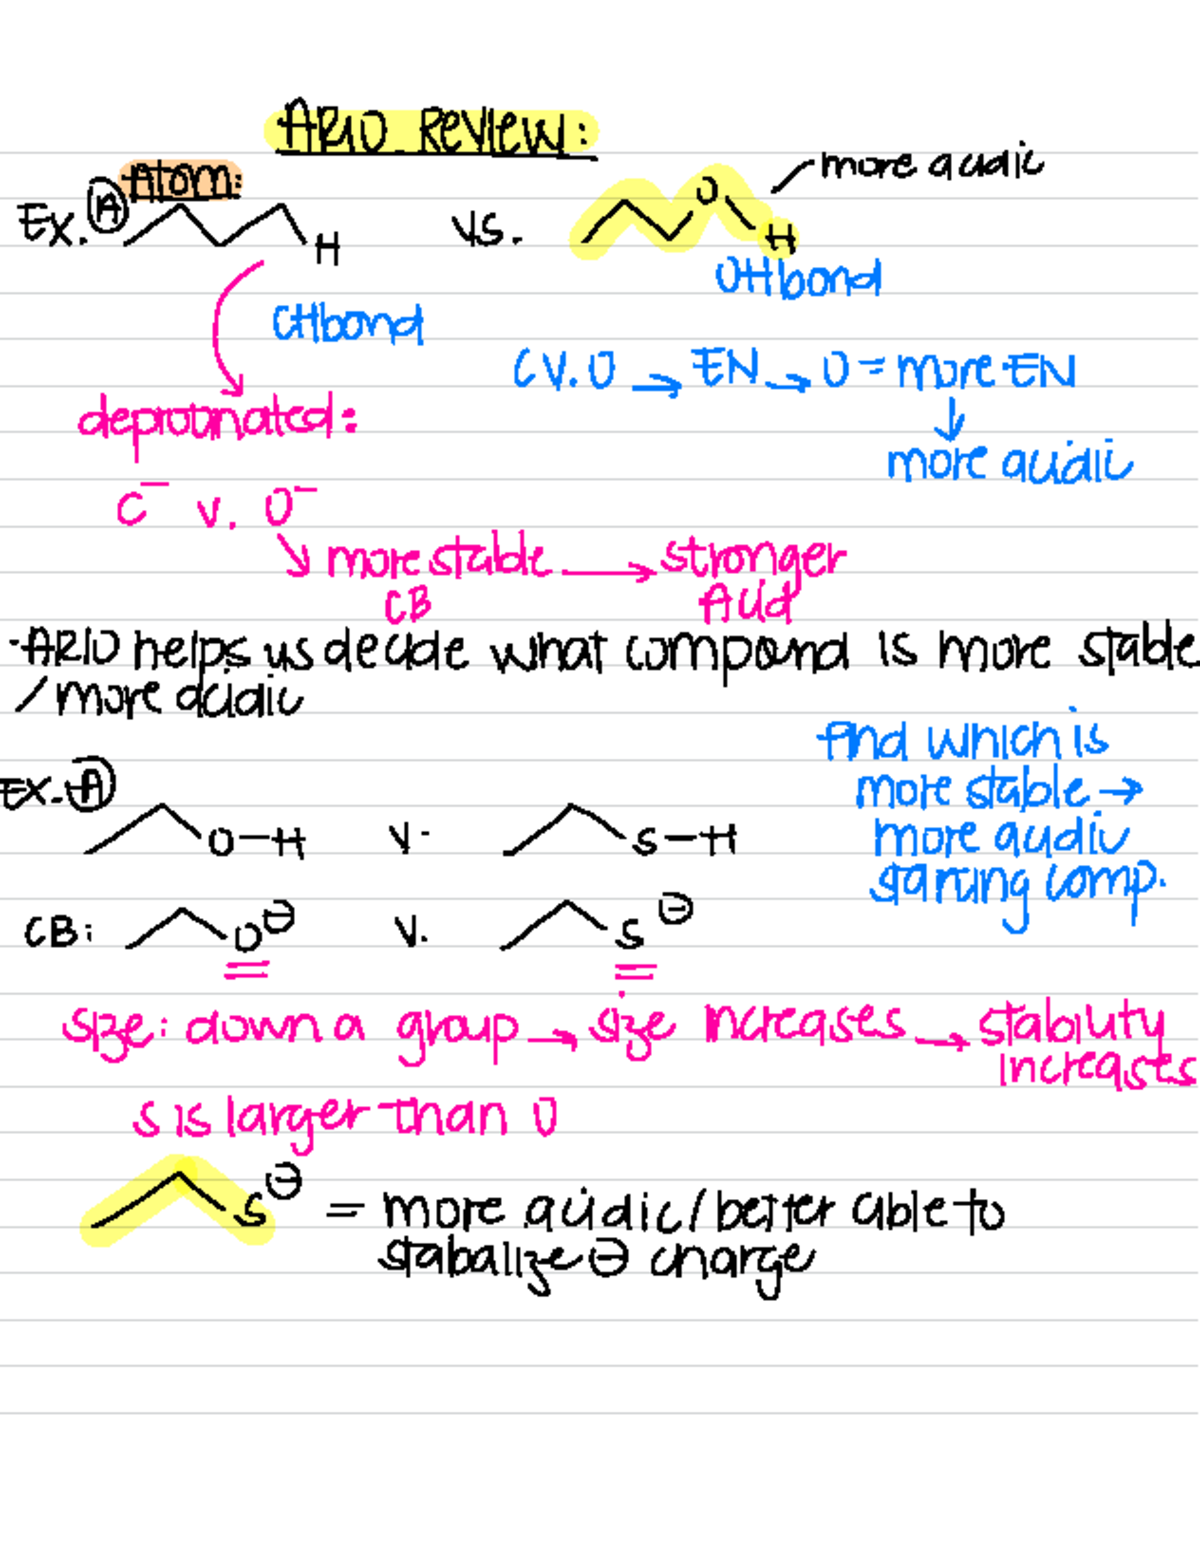 ARIO Review:
Atom:
more acidic
Ex. A
H
vs.
O
H
OH bond
CH bond
C v. O → EN → O = more EN
↓
more acidic
deprotonated:
C⁻ v. O⁻
↘ more stable → stronger
CB Acid
-ARIO helps us decide what compound is more stable
/more acidic
find which is
more stable →
more acidic
starting comp.
EX. A
O-H v. S-H
CB: O⊖ v. S⊖
size: down a group → size increases → stability
increases
S is larger than O
S⊖ = more acidic/better able to
stabalize ⊖ charge